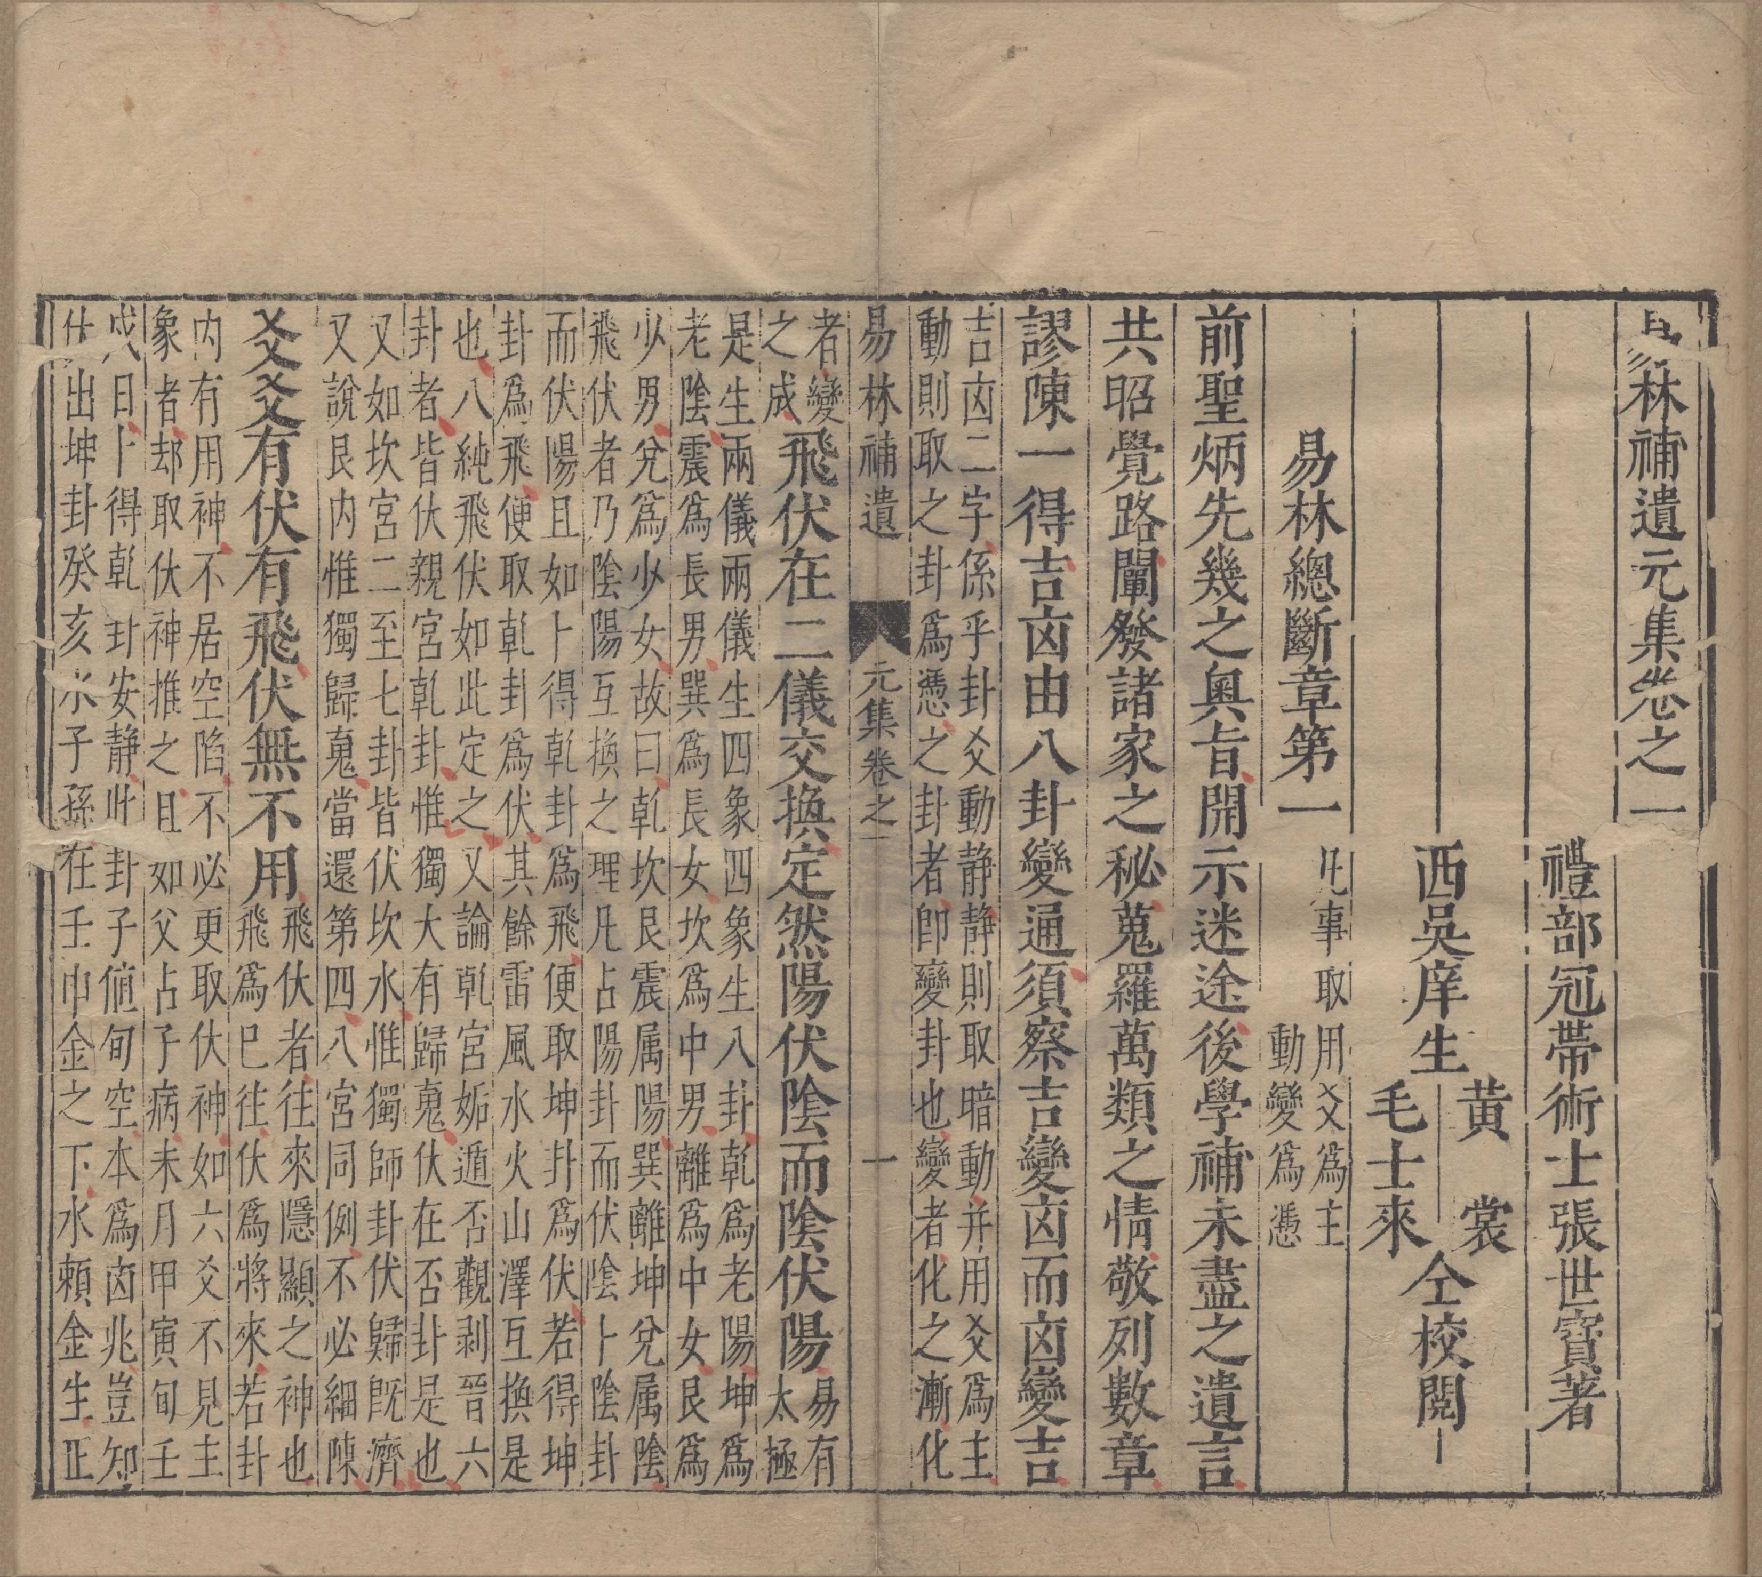 易林補遺元集卷之一
禮部冠帶術士張世寶著
西吳庠生
黃裳
毛士來
仝校閱
易林總斷章第一
凡事取用爻爲主
動變爲憑
前聖炳先幾之奧旨開示迷途後學補未盡之遺言
共昭覺路闡發諸家之秘蒐羅萬類之情敬列數章
謬陳一得吉凶由八卦變通須察吉變凶而凶變吉
吉凶二字係乎卦爻動静静則取暗動并用爻爲主
動則取之卦爲憑之卦者卽變卦也變者化之漸化
易林補遺
元集卷之一
一
者變
之成
飛伏在二儀交換定然陽伏陰而陰伏陽
易有
太極
是生兩儀兩儀生四象四象生八卦乾爲老陽坤爲
老陰震爲長男巽爲長女坎爲中男離爲中女艮爲
少男兌爲少女故曰乾坎艮震属陽巽離坤兌属陰
飛伏者乃陰陽互換之理凡占陽卦而伏陰卜陰卦
而伏陽且如卜得乾卦爲飛便取坤卦爲伏若得坤
卦爲飛便取乾卦爲伏其餘雷風水火山澤互換是
也八純飛伏如此定之又論乾宮姤遁否觀剥晉六
卦者皆伏親宮乾卦惟獨大有歸䰟伏在否卦是也
又如坎宮二至七卦皆伏坎水惟獨師卦伏歸旣濟
又說艮内惟獨歸䰟當還第四八宮同例不必細陳
爻爻有伏有飛伏無不用
飛伏者往來隱顯之神也
飛爲已往伏爲將來若卦
内有用神不居空陷不必更取伏神如六爻不見主
象者却取伏神推之且如父占子病未月甲寅旬壬
戌日卜得乾卦安静此卦子値旬空本爲凶兆豈知
出坤卦癸亥水子孫在壬申金之下水賴金生正